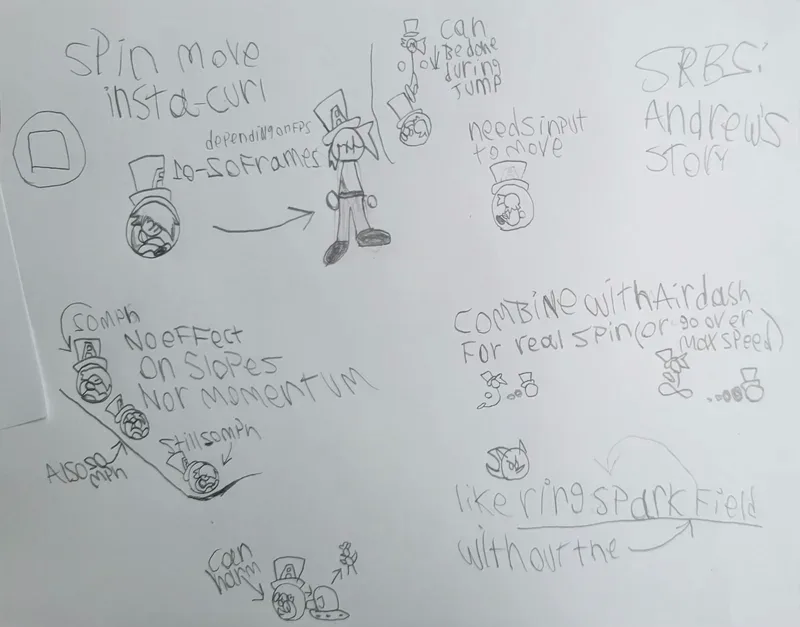 Spin move
insta-curl
depending on FPS
10-50 Frames
can
Be done
during
Jump
needs input
to move
SRBS:
Andrew's
Story
50mph
No effect
on slopes
Nor momentum
Also 50
mph
still 50mph
Combine with Airdash
For real spin (or go over
max speed)
like ring spark Field
without the
Can
harm